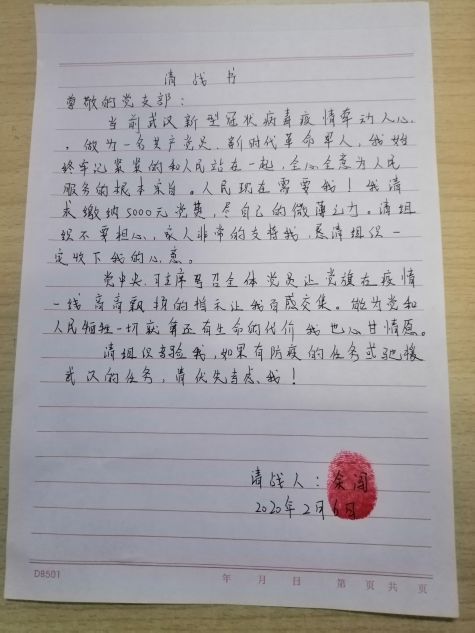 请战书
尊敬的党支部：
当前武汉新型冠状病毒疫情牵动人心
，做为一名共产党员、新时代革命军人，我始
终牢记紧紧的和人民站在一起，全心全意为人民
服务的根本宗旨。人民现在需要我！我请
求缴纳5000元党费，尽自己的微薄之力。请组
织不要担心，家人非常的支持我，恳请组织一
定收下我的心意。
党中央、习主席号召全体党员让党旗在疫情
一线高高飘扬的指示让我百感交集。能为党和
人民牺牲一切甚至还有生命的代价我也心甘情愿。
请组织考验我，如果有防疫的任务或驰援
武汉的任务，请优先考虑我！
请战人：余闯
2020年2月6日
DB501 年 月 日 第 页 共 页